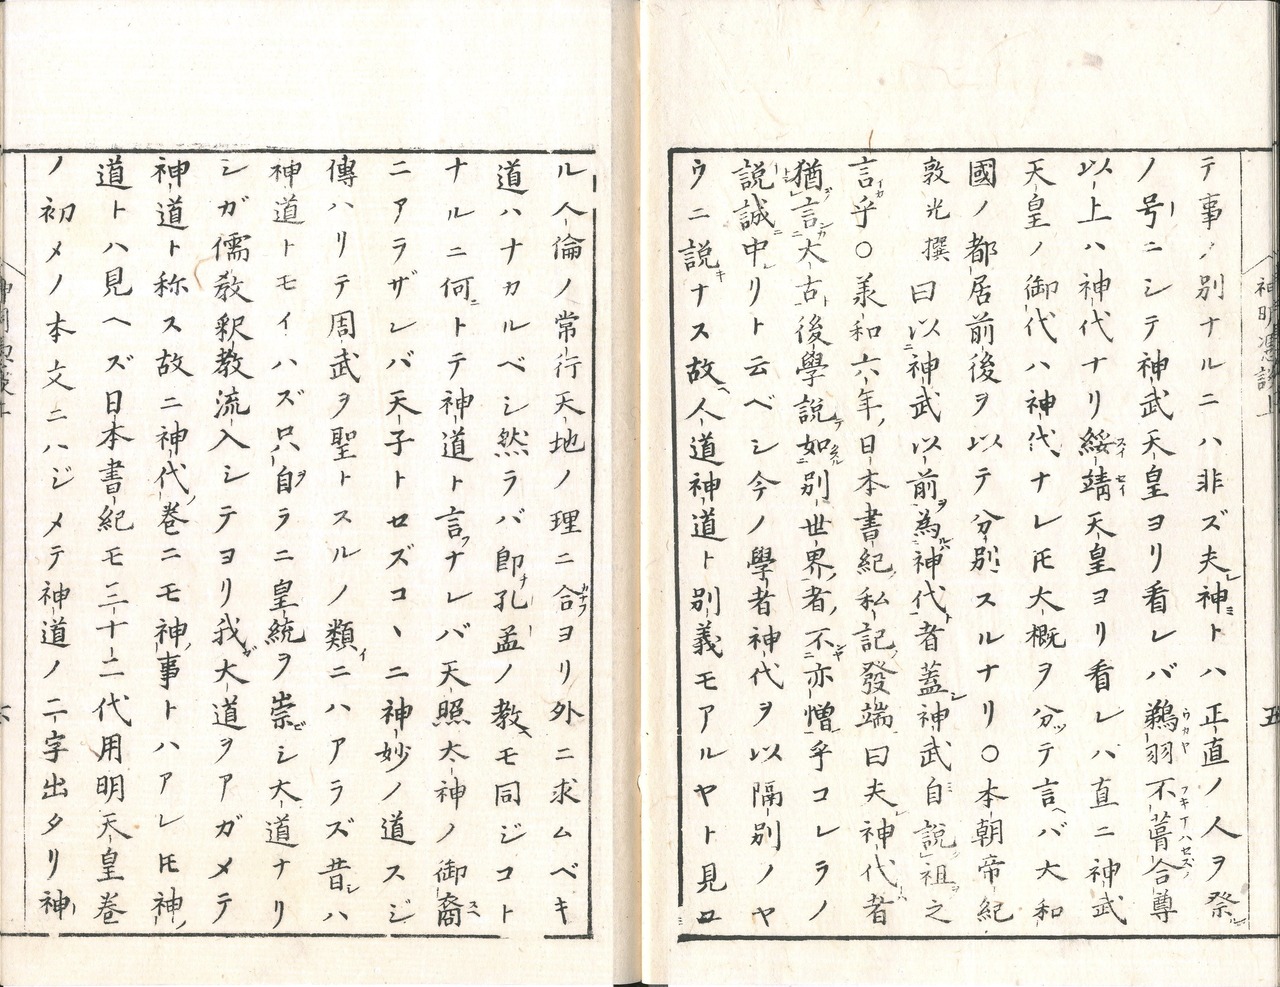 テ事ノ別ナルニハ非ズ夫神トハ正直ノ人ヲ祭
ノ号ニシテ神武天皇ヨリ看レバ鵜羽不葺合尊
以上ハ神代ナリ綏靖天皇ヨリ看レハ直ニ神武
天皇ノ御代ハ神代ナレ𪜈大概ヲ分テ言バ大和
國ノ都居前後ヲ以テ分別スルナリ〇本朝帝紀
敦光撰曰以神武以前為神代者蓋神武自説祖之
言乎〇羕和六年日本書紀私記發端曰夫神代者
猶言大古後學説如別世界者不亦憎乎コレラノ
説誠中リト云ベシ今ノ學者神代ヲ以隔別ノヤ
ウニ説ナス故人道神道ト別義モアルヤト見ユ
ル人倫ノ常行天地ノ理ニ合ヨリ外ニ求ムベキ
道ハナカルベシ然ラバ即孔孟ノ教モ同ジコト
ナルニ何トテ神道ト言ナレバ天照太神ノ御裔
ニアラザレバ天子トセズコヽニ神妙ノ道スジ
傳ハリテ周武ヲ聖トスルノ類ニハアラズ昔ハ
神道トモイハズ只自ラニ皇統ヲ崇シ大道ナリ
シガ儒教釈教流入シテヨリ我大道ヲアガメテ
神道ト称ス故ニ神代巻ニモ神事トハアレ𪜈神
道トハ見ヘズ日本書紀モ三十二代用明天皇巻
ノ初メノ本文ニハジメテ神道ノ二字出タリ神
五
六